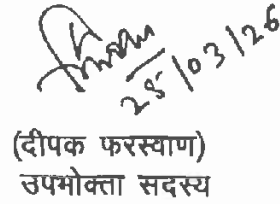 25/03/26
(दीपक फरस्वाण)
उपभोक्ता सदस्य